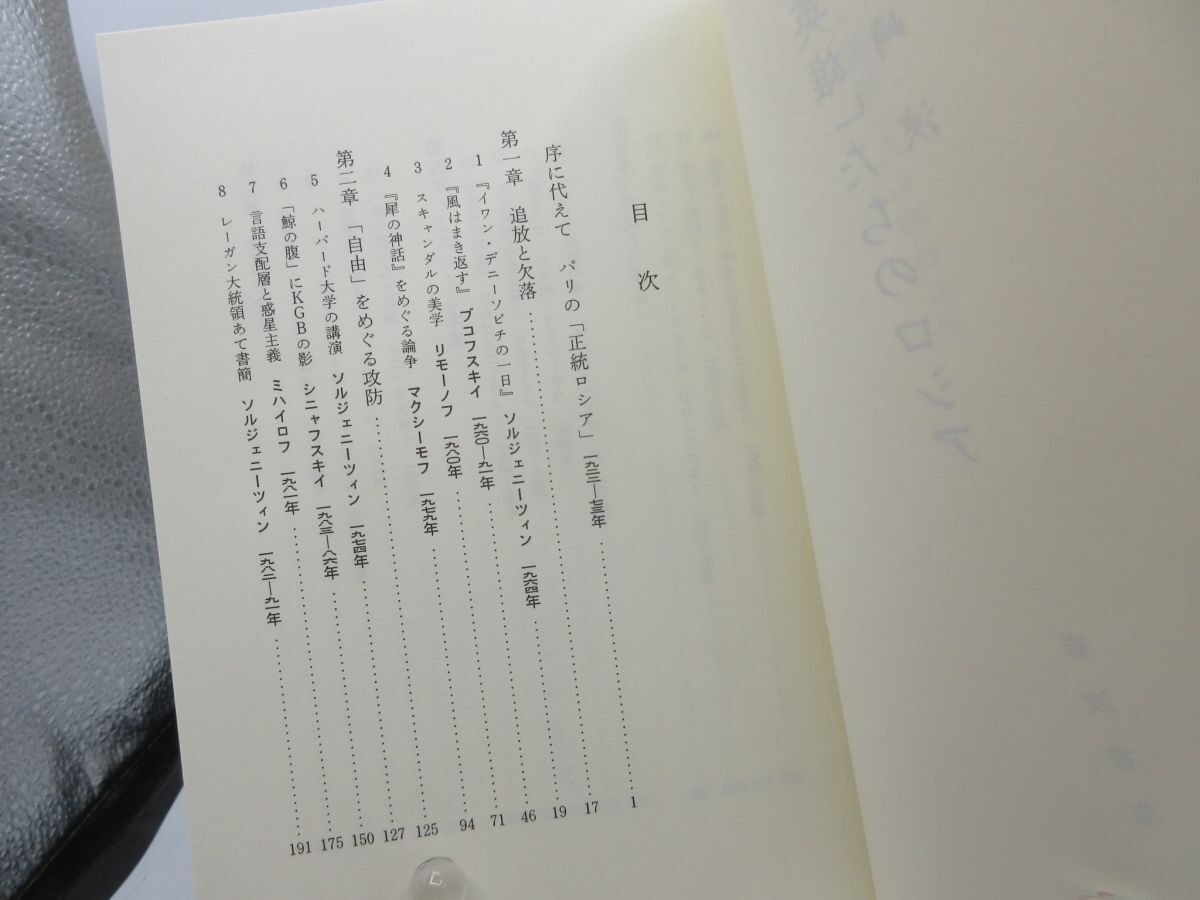 英雄たちのロシア
崎 浹
岩波書店
目 次
序に代えて パリの「正統ロシア」 1
第一章 追放と欠落 17
1 『イワン・デニーソビチの一日』 ソルジェニーツィン 一九六四年 19
2 『風はまき返す』 ブコフスキイ 一九六〇—九一年 46
3 スキャンダルの美学 リモーノフ 一九八〇年 71
4 『犀の神話』をめぐる論争 マクシーモフ 一九七九年 94
第二章 「自由」をめぐる攻防 125
5 ハーバード大学の講演 ソルジェニーツィン 一九七四年 127
6 「鯨の腹」にKGBの影 シニャフスキイ 一九八三—八六年 150
7 言語支配層と惑星主義 ミハイロフ 一九八一年 175
8 レーガン大統領あて書簡 ソルジェニーツィン 一九八二—九一年 191